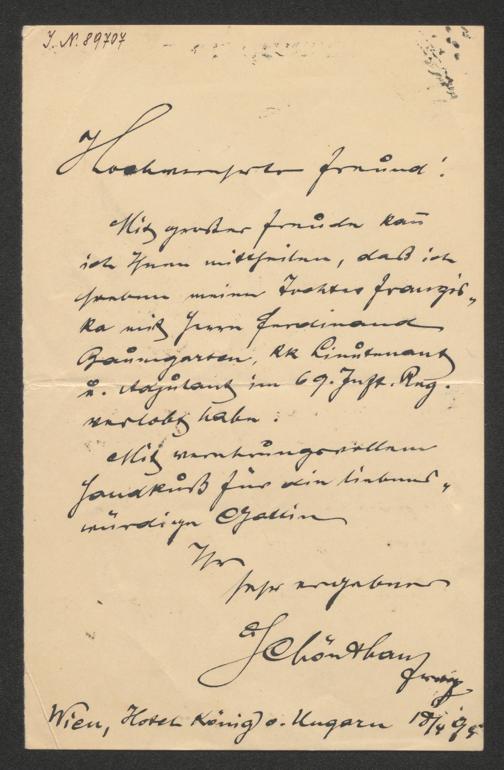 J. N. 89707
Hochverehrter Freund!
Mit großer Freude kann
ich Ihnen mittheilen, daß ich
soeben meine Tochter Franzis-
ka mit Herrn Ferdinand
Baumgarten, kk Lieutenant
u. Adjutant im 69. Inft. Reg.
verlobt habe.
Mit verehrungsvollem
Handkuß für die liebens-
würdige Gattin
Ihr
sehr ergebener
Schönthan
Franz
Wien, Hotel König v. Ungarn